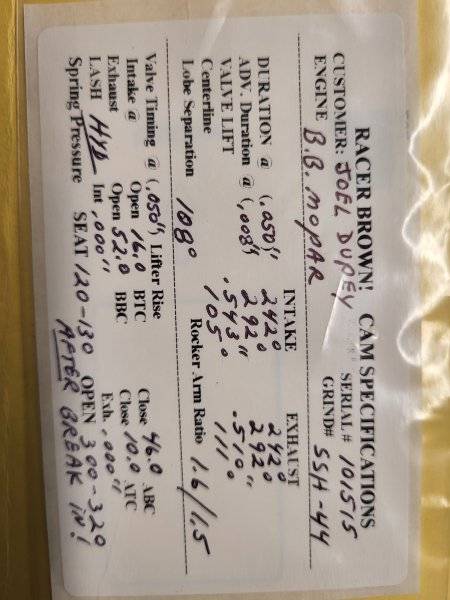 RACER BROWN! CAM SPECIFICATIONS
CUSTOMER: JOEL DUPEY SERIAL # 101515
ENGINE B.B. MOPAR GRIND# SSH-44
INTAKE EXHAUST
DURATION @ (.050") 242° 242°
ADV. Duration @ (.008") 292° 292°
VALVE LIFT .543" .510"
Centerline 105° 111°
Lobe Separation 108° Rocker Arm Ratio 1.6/1.5
Valve Timing @ (.050") Lifter Rise
Intake @ Open 16.0 BTC Close 46.0 ABC
Exhaust Open 52.0 BBC Close 10.0 ATC
LASH HYD Int .000" Exh. .000"
Spring Pressure SEAT 120-130 OPEN 300-320
AFTER BREAK IN!